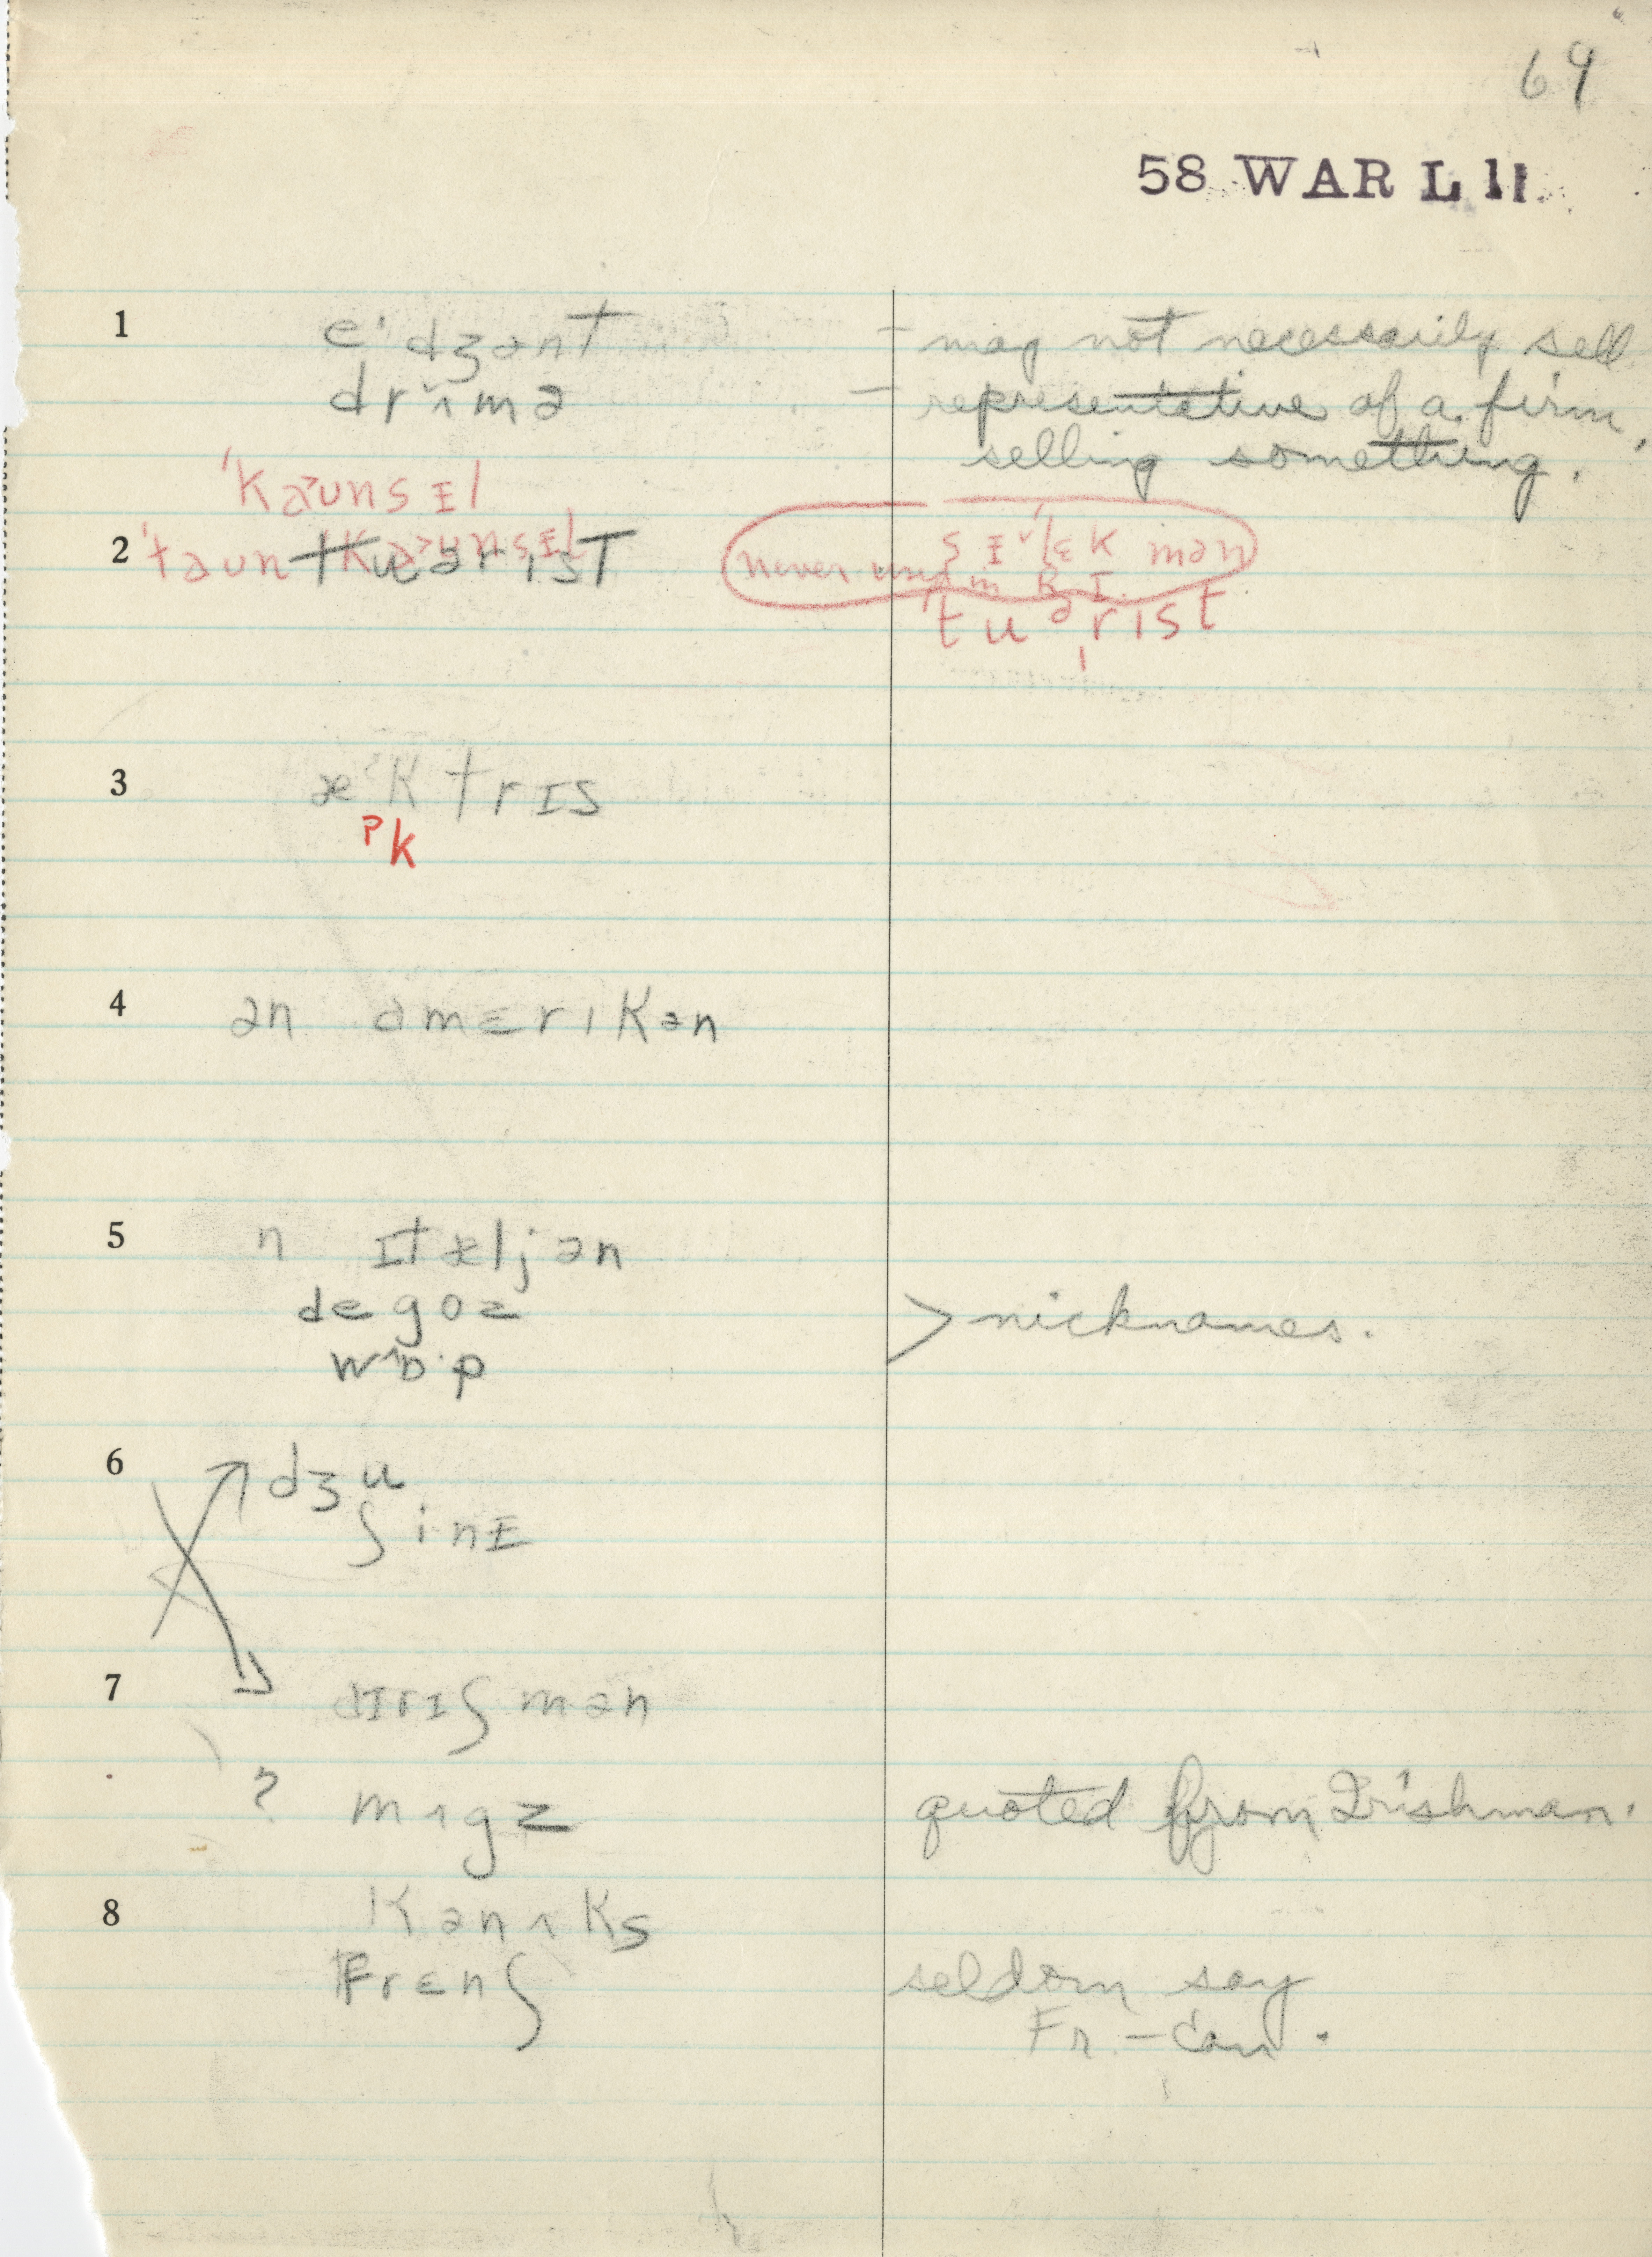 69
58 WAR L 11
1 e'dʒənt – may not necessarily sell
drʌmə – representative of a firm,
selling something.
'kaunsɪl
2 tuərɪst sɪ'lɛkmən
never used in R I.
'tuᵊrɪst
3 æ'ktrɪs
ᵖk
4 ən əmɛrɪkən
5 n ɪtæljən
degoz > nicknames.
wɒ·p
6 dʒu
ʃinɪ
7 aɪrɪʃmən
? mɪgz quoted from Irishman.
8 kənʌks
frɛnʃ seldom say
Fr. – Can.